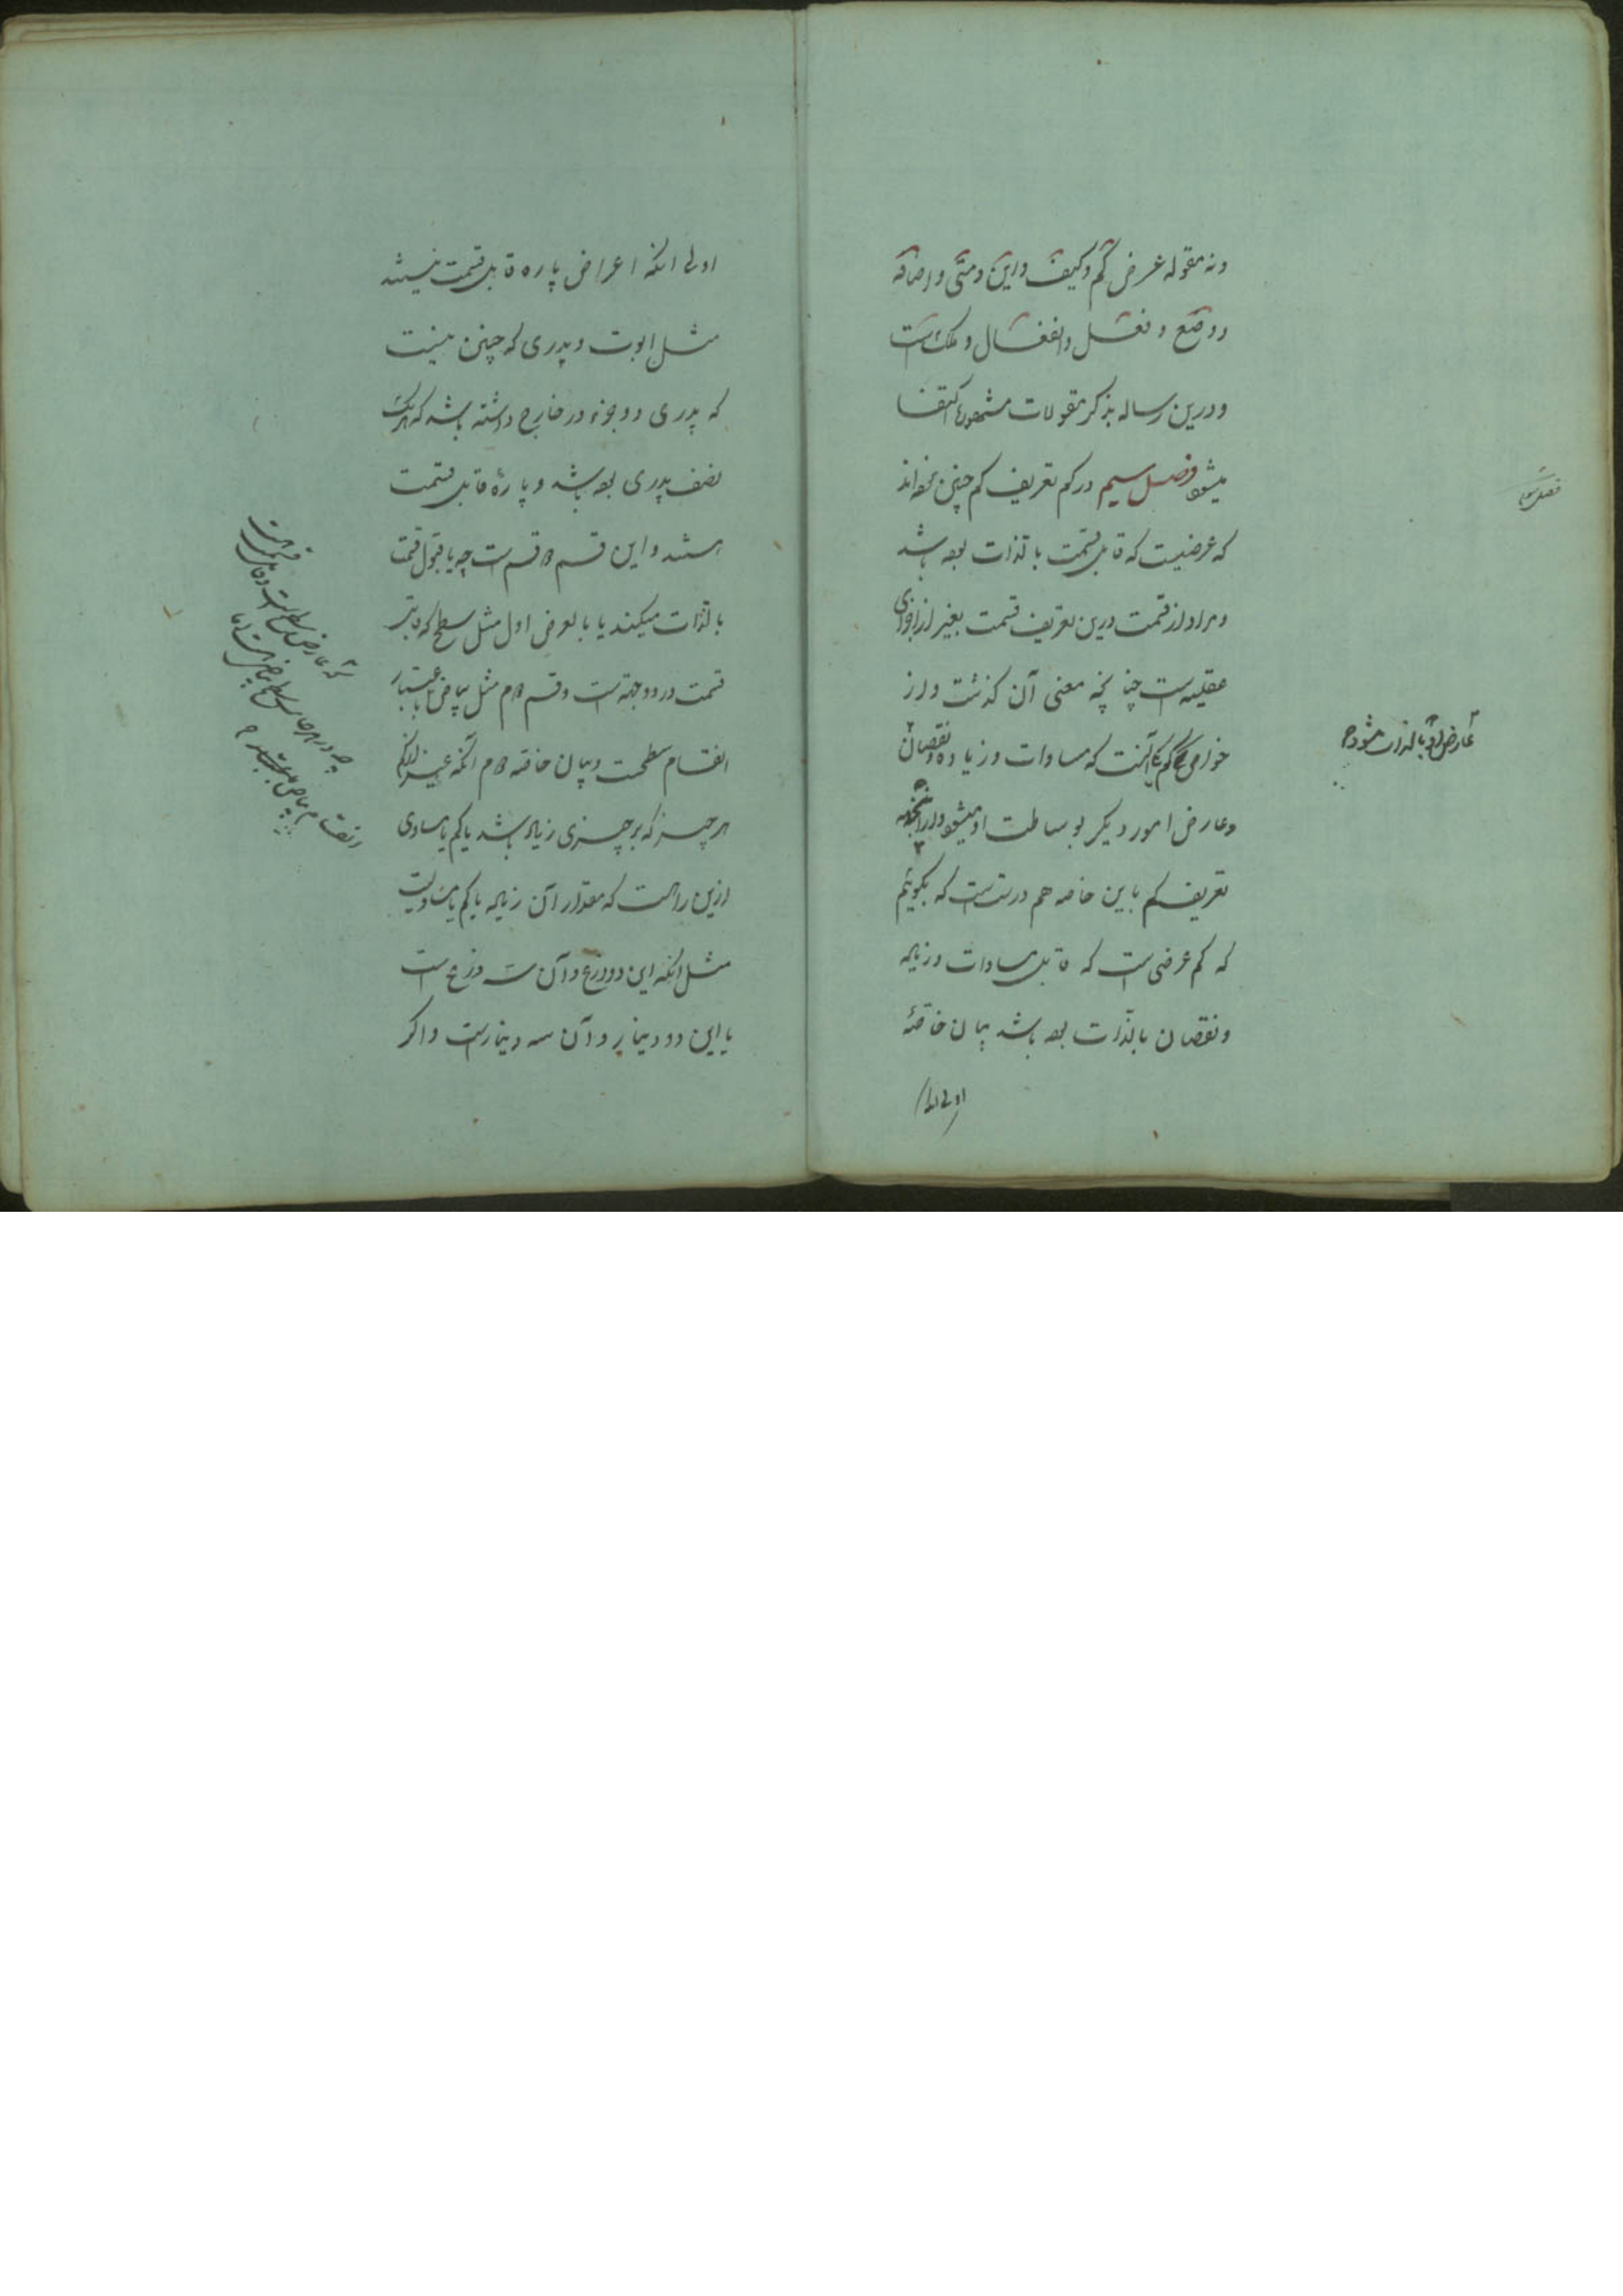 ونه مقوله عرض کم وکیف واین ومتی واضافه
ووضع وفعل وانفعال وملک است
ودرین رساله بذکر مقولات مشهوره اکتفا
میشود فصل سیم در کم تعریف کم چنین کرده‌اند
که عرضیست که قابل قسمت بالذات بوده باشد
ومراد از قسمت درین تعریف قسمت بغیر از اجزای
عقلیه است چنانچه معنی آن گذشت واز
خواص کم آنست که مساوات وزیاده ونقصان
وعارض امور دیگر بوساطت او میشود وازینجهة
تعریف کم باین خاصه هم درست است که بگوئیم
که کم عرضی است که قابل مساوات وزیاده
ونقصان بالذات بوده باشد بیان خاصّهٔ
اولی آنکه
فصل سیم
عارض او بالذات میشود
اولی آنکه اعراض پاره قابل قسمت نیستند
مثل ابوت وپدری که چنین نیست
که پدری دو جزء در خارج داشته باشد که هر یک
نصف پدری بوده باشد وپارهٔ قابل قسمت
هستند واین قسم دو قسم است چه یا قبول قسمت
بالذات میکنند یا بالعرض اول مثل سطح که قابل
قسمت در دو جهة است وقسم دوم مثل بیاض باعتبار
انقسام سطحست وبیان خاصّه دوم آنکه غیر از کم
هر چیز که بر چیزی زیاده باشد یا کم یا مساوی
ازین راهست که مقدار آن زیاده یا کم یا مساویست
مثل آنکه این دو ذرع وآن سه ذرع است
یا این دو دینار وآن سه دینارست واگر
که عارض سطح است وقابل قسمت است
انقسام بیاض